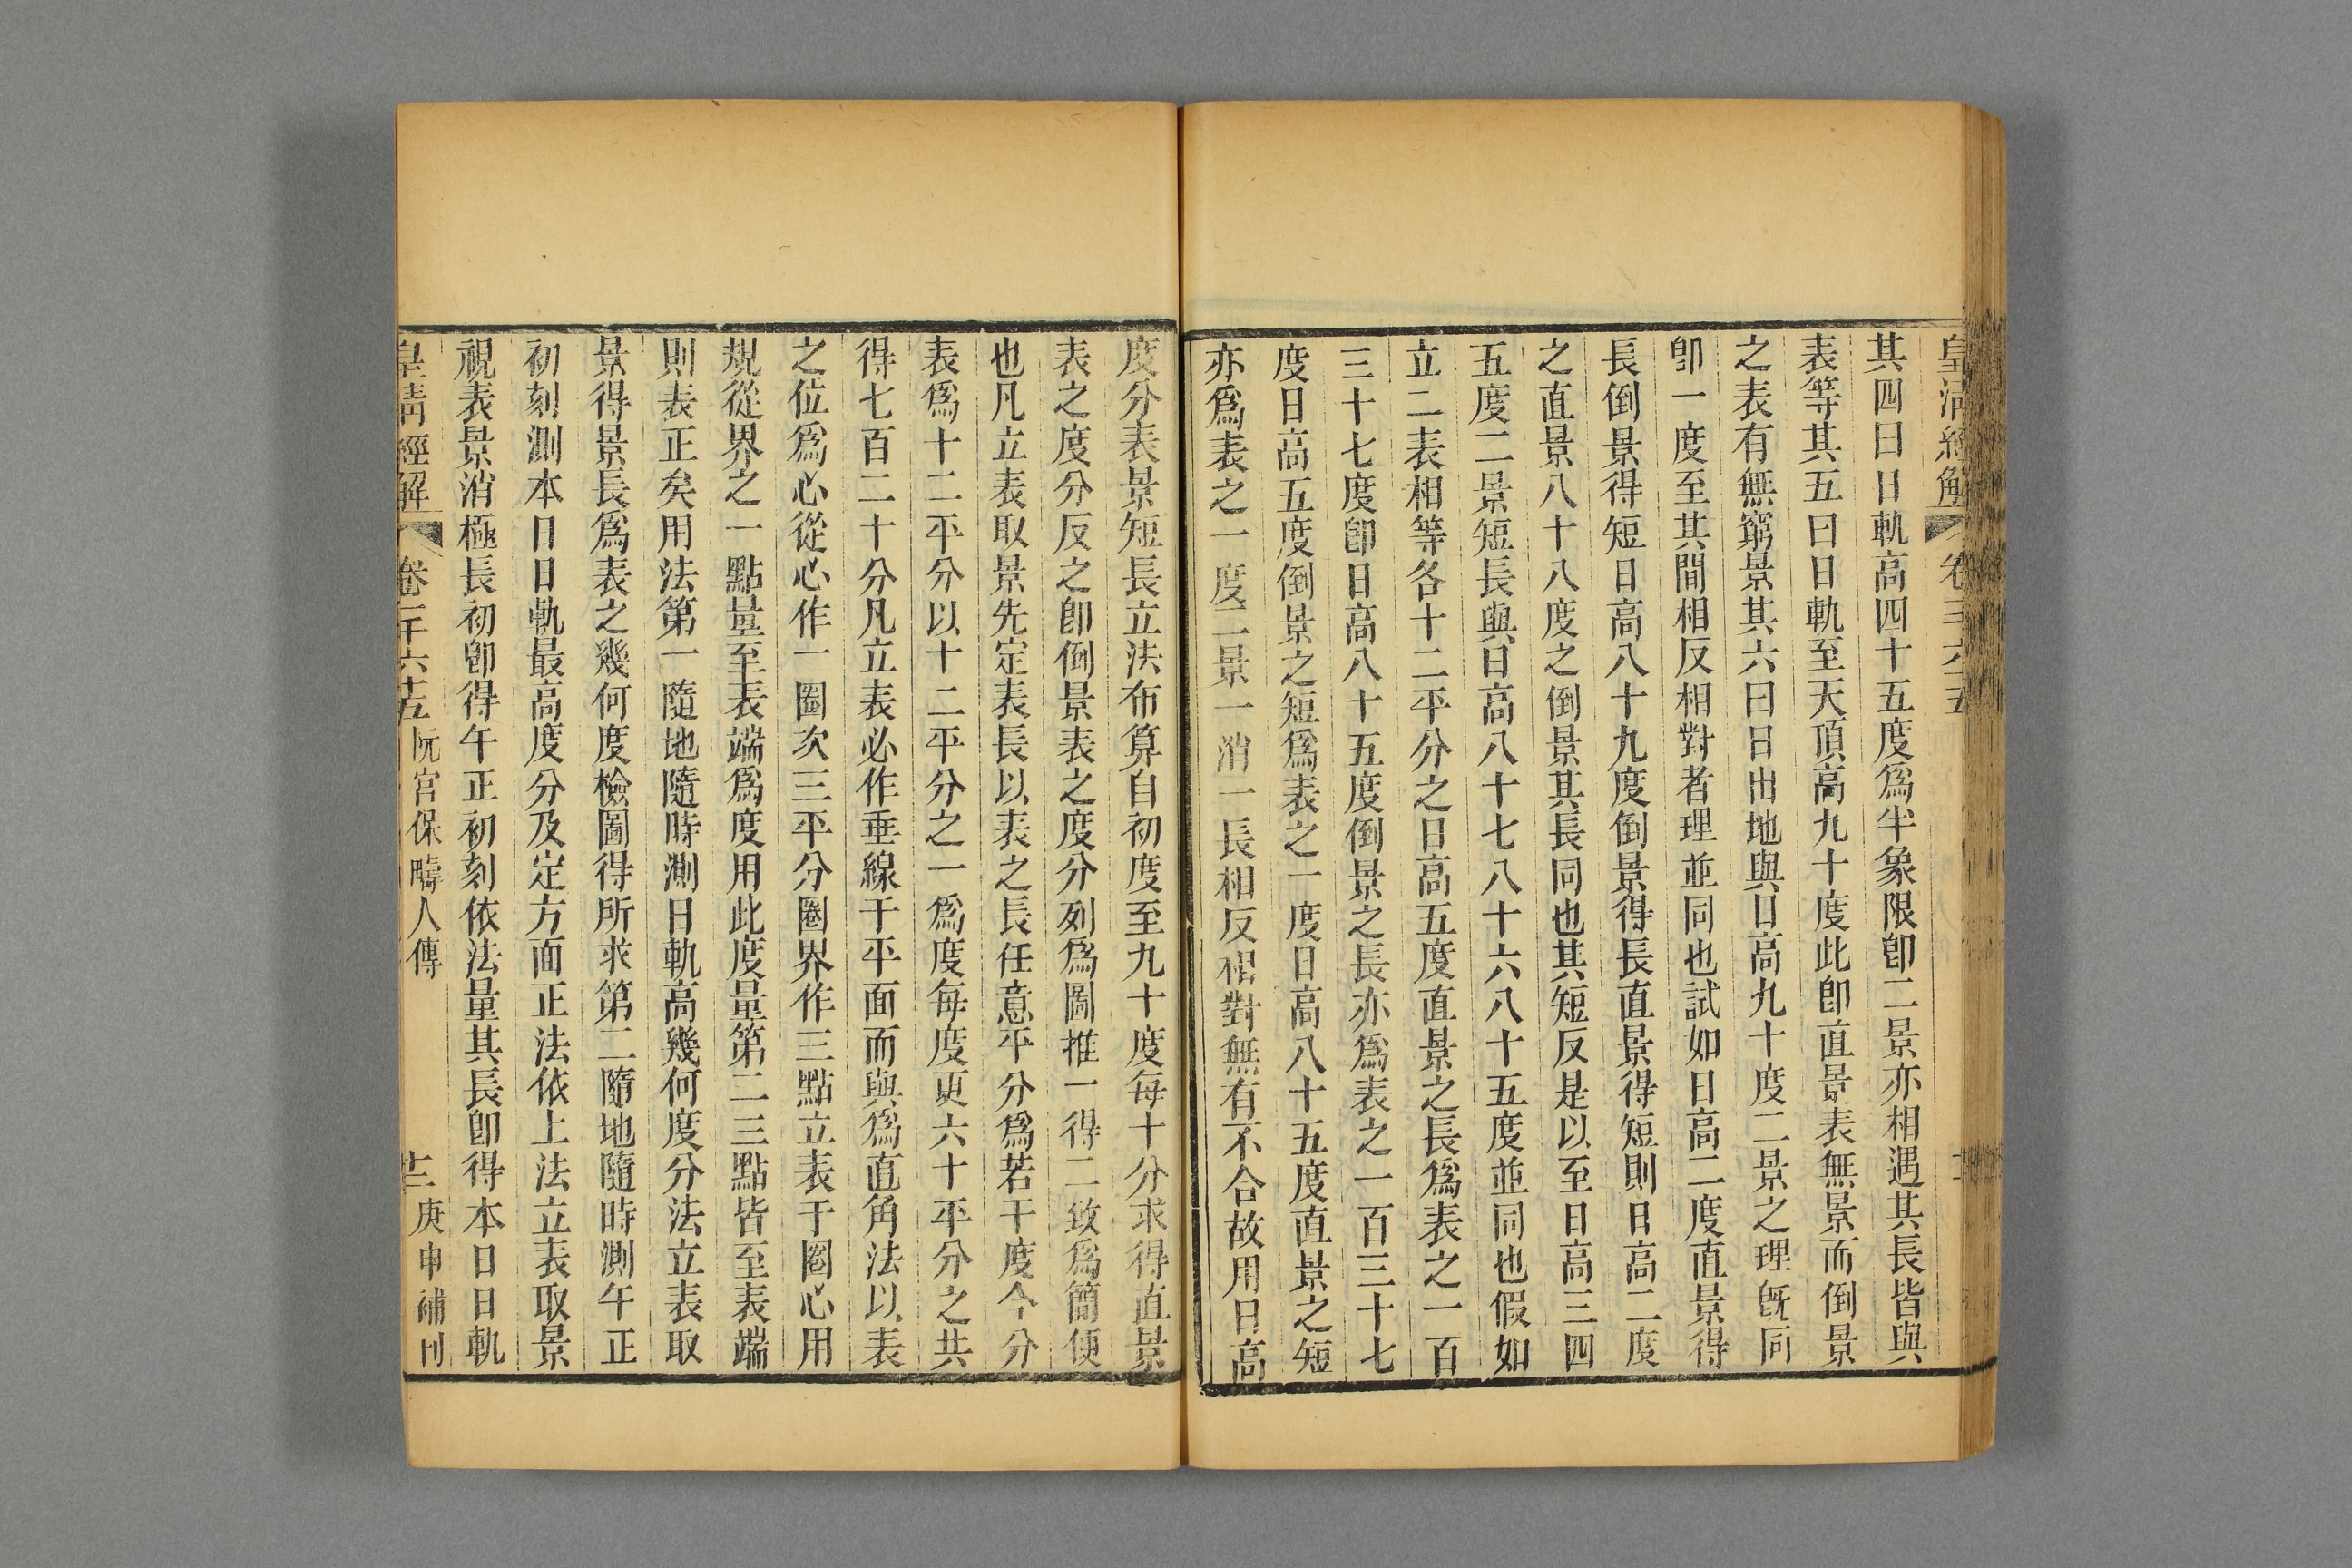 皇清經解
卷
其四曰日軌高四十五度爲半象限卽二景亦相遇其長皆與
表等其五曰日軌至天頂高九十度此卽直景表無景而倒景
之表有無窮景其六曰日出地與日高九十度二景之理旣同
卽一度至其間相反相對者理並同也試如日高二度直景得
長倒景得短日高八十九度倒景得長直景得短則日高二度
之直景八十八度之倒景其長同也其短反是以至日高三四
五度二景短長與日高八十七八十六八十五度並同也假如
立二表相等各十二平分之日高五度直景之長爲表之一百
三十七度卽日高八十五度倒景之長亦爲表之一百三十七
度日高五度倒景之短爲表之一度日高八十五度直景之短
亦爲表之一度二景一消一長相反相對無有不合故用日高
度分表景短長立法布算自初度至九十度每十分求得直景
表之度分反之卽倒景表之度分列爲圖推一得二致爲簡便
也凡立表取景先定表長以表之長任意平分爲若干度今分
表爲十二平分以十二平分之一爲度每度更六十平分之共
得七百二十分凡立表必作垂線于平面而與爲直角法以表
之位爲心從心作一圈次三平分圈界作三點立表于圈心用
規從界之一點量至表端爲度用此度量第二三點皆至表端
則表正矣用法第一隨地隨時測日軌高幾何度分法立表取
景得景長爲表之幾何度檢圖得所求第二隨地隨時測午正
初刻測本日日軌最高度分及定方面正法依上法立表取景
視表景消極長初卽得午正初刻依法量其長卽得本日日軌
皇清經解
卷一千六十五
阮宮保疇人傳
十二
庚申補刊